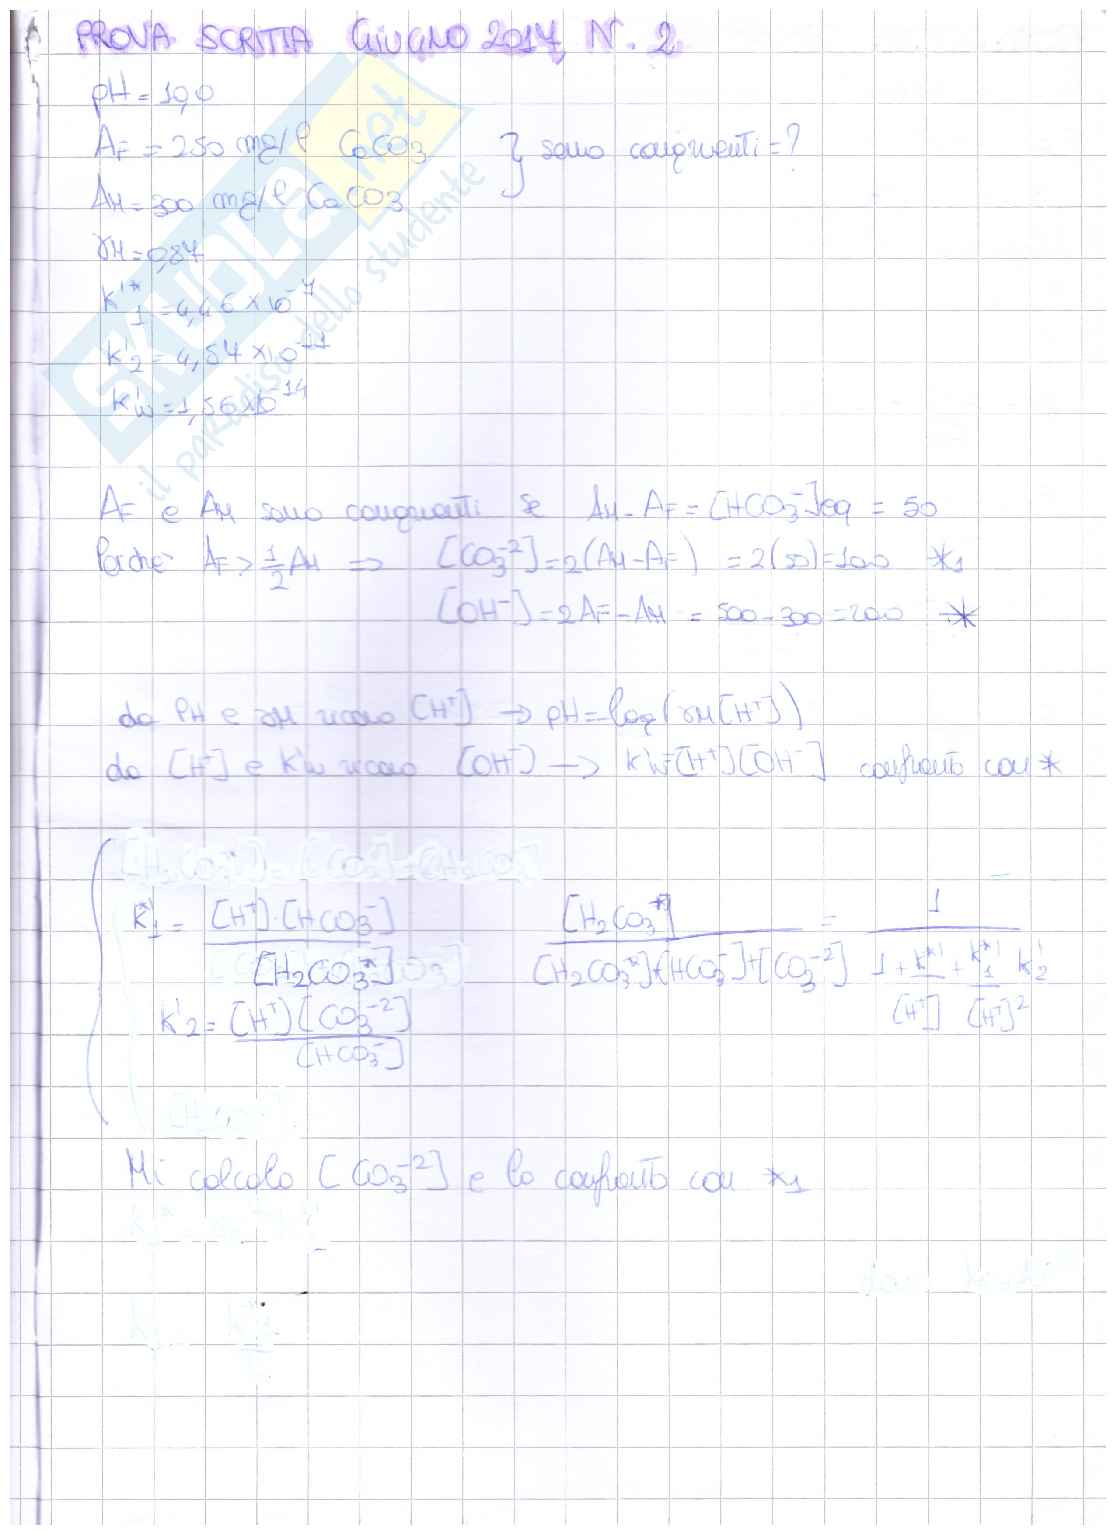 PROVA SCRITTA GIUGNO 2014 N. 2
pH = 10,0
AF = 250 mg/l CaCO3 } sono congruenti = ?
AM = 300 mg/l CaCO3
γM = 0,87
K'*1 = 4,46 × 10^-7
K'2 = 4,54 × 10^-11
K'w = 1,56 × 10^-14
SKUOLA.net
il paradiso dello studente
AF e AM sono congruenti se AM - AF = [HCO3^-]eq = 50
Perché AF > 1/2 AM ⇒ [CO3^-2] = 2(AM - AF) = 2(50) = 100 *1
[OH^-] = 2AF - AM = 500 - 300 = 200 *
da PH e γM ricavo [H+] → pH = log(γM[H+])
da [H+] e K'w ricavo [OH^-] → K'w = [H+][OH^-] confronto con *
K*'1 = [H+]·[HCO3^-] / [H2CO3*]   [H2CO3*] / [H2CO3*]+[HCO3^-]+[CO3^-2] = 1 / 1 + K*'/[H+] + K*'1 K'2/[H+]^2
K'2 = [H+][CO3^-2] / [HCO3^-]
Mi calcolo [CO3^-2] e lo confronto con *1